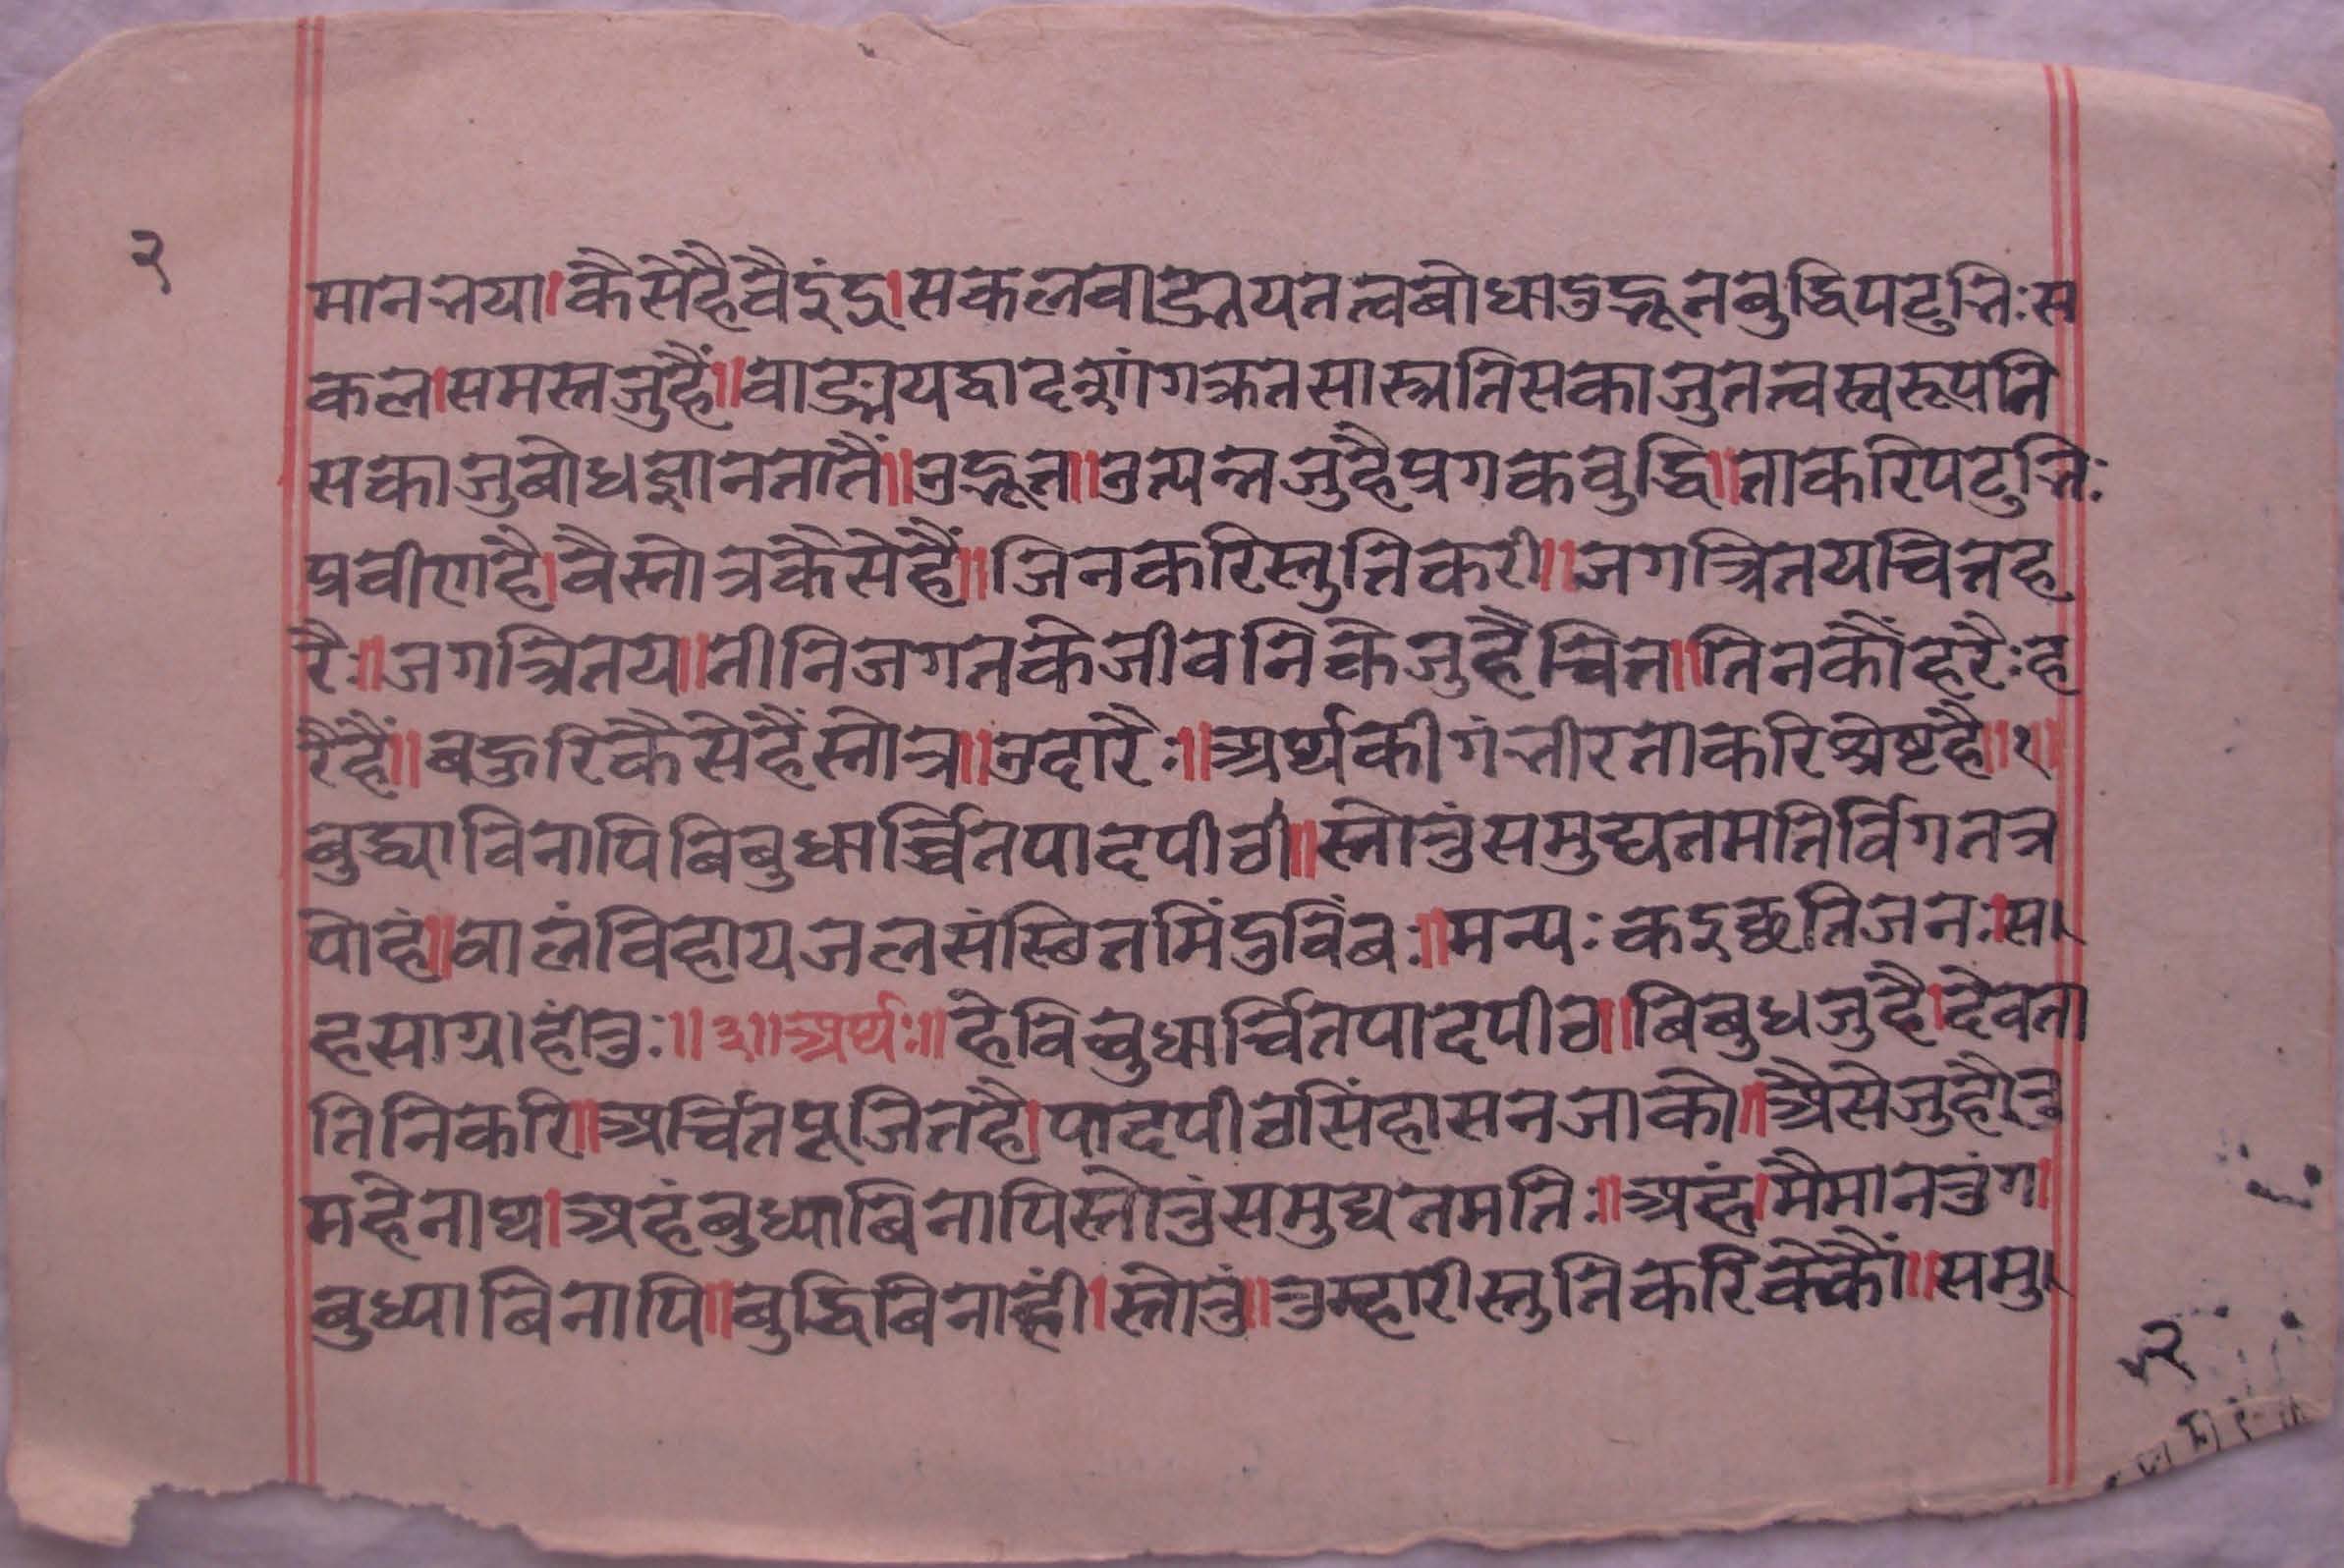 २
मानतया।कैसेहैवैइंद्र।सकलवाङ्मयतत्वबोधाउद्भूतबुद्धिपटुभिः स
कल।समस्तजुहैं॥वाङ्मयद्वादशांगश्रुतसास्त्रतिसकाजुतत्वस्वरूपति
सकाजुबोधज्ञानतातैं॥उद्भूत॥उत्पन्नजुहैप्रगकबुद्धि॥ताकरिपटुभिः
प्रवीणहै।वैस्तोत्रकैसेहैं॥जिनकरिस्तुतिकरी॥जगत्त्रितयचित्तह
रैः॥जगत्त्रितय॥तीनिजगतकेजीवनिकेजुहैचित्त॥तिनकौंहरैः ह
रैहैं॥बहुरिकैसेहैंस्तोत्र॥उदारैः॥अर्थकीगंभीरताकरिश्रेष्टहै॥२॥
बुद्ध्याविनापिबिबुधार्च्चितपादपीठ॥स्तोतुंसमुद्यतमतिर्विगतत्र
पोहं॥वालंविहायजलसंस्थितमिंदुविंबः॥मन्यः कइच्छतिजनः।स।
हसाग्राहीतुः॥३॥अर्थः॥हेविबुधार्च्चितपादपीठ॥बिबुधजुहै।देवता
तिनिकरि॥अर्चितपूजितहै।पादपीठसिंहासनजाको॥अैसेजुहौतु
महेनाथ।अहंबुध्याबिनापिस्तोतुंसमुद्यतमतिः॥अहं।मैमानतुंग।
बुध्याबिनापि॥बुद्धिबिनाहीं।स्तोतुं॥तुम्हारीस्तुतिकरिकेकौं॥समु।
२